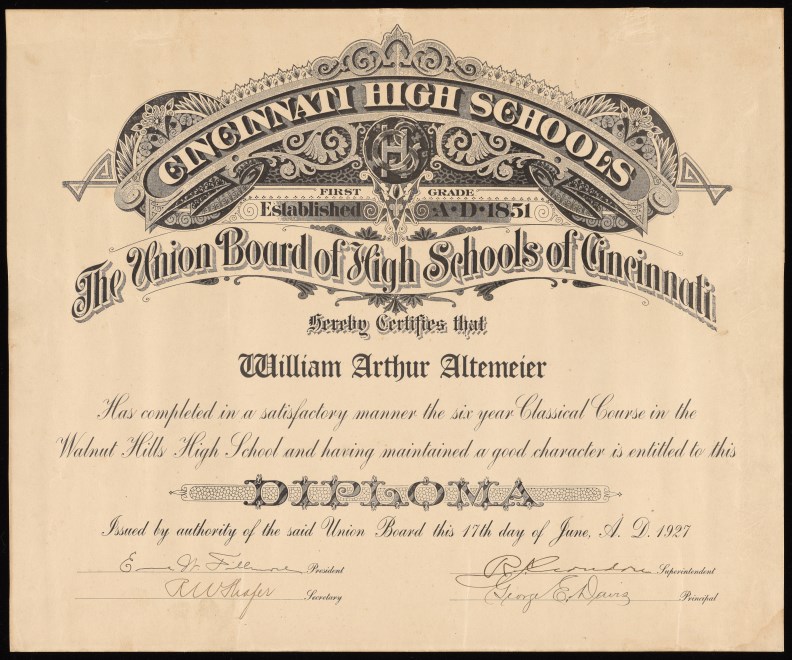 CINCINNATI HIGH SCHOOLS
FIRST GRADE
Established A·D·1851
The Union Board of High Schools of Cincinnati
Hereby Certifies that
William Arthur Altemeier
Has completed in a satisfactory manner the six year Classical Course in the
Walnut Hills High School and having maintained a good character is entitled to this
DIPLOMA
Issued by authority of the said Union Board this 17th day of June, A. D. 1927
President Superintendent
R W Shafer Secretary George E. Davis Principal